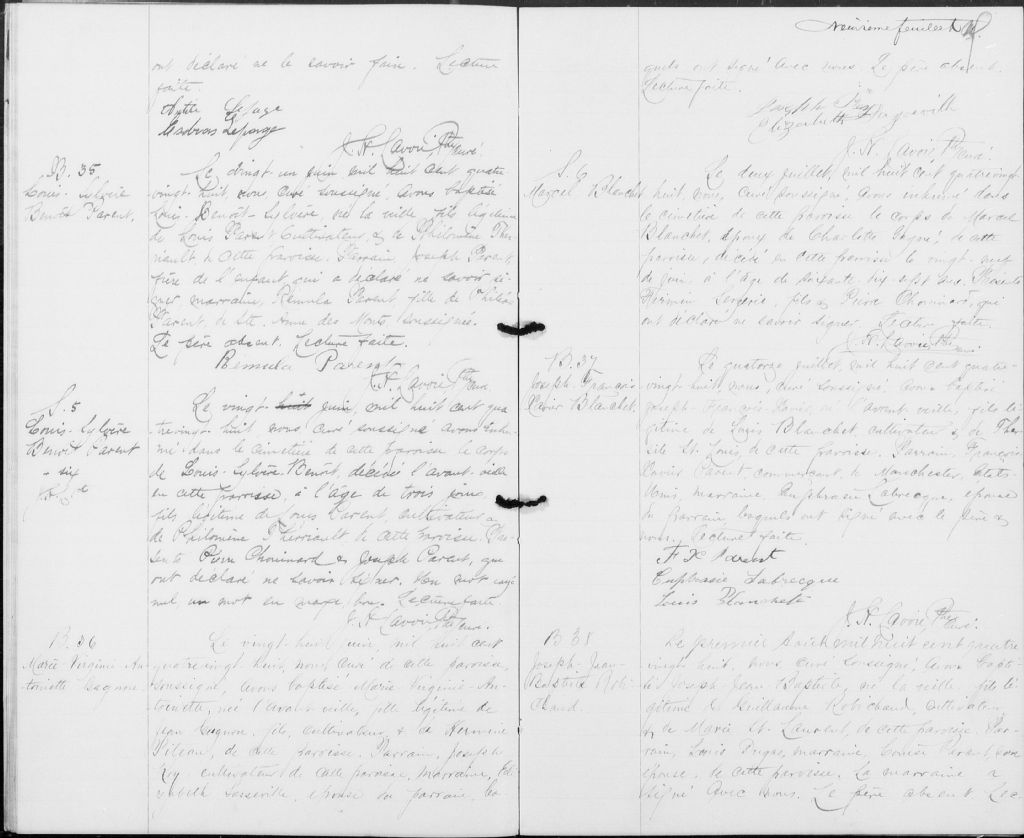 ont déclaré ne le savoir faire. Lecture
faite.
Lepage
Lepage
J. A. Lavoie Ptre curé
B. 35
Louis-Sylvère
Benoit Parent.
Le vingt-un juin mil huit cent quatre
vingt-huit, nous curé soussigné, avons baptisé
Louis-Benoit-Sylvère, né la veille, fils légitime
de Louis Parent Cultivateur & de Philomène Thé
riault de cette paroisse. Parrain, Joseph Parent
frère de l'enfant qui a déclaré ne savoir si
gner marraine, Rémula Parent, fille de
Parent, de Ste. Anne des Monts soussignée.
Le père absent. Lecture faite.
Remula Parent
J. A. Lavoie Ptre curé
S. 5
Louis-Sylvère
Benoit Parent
- six
Le vingt-huit juin, mil huit cent qua
tre vingt-huit nous curé soussigné avons inhu
mé dans le cimetière de cette paroisse le corps
de Louis-Sylvère Benoit, décédé l'avant-veille
en cette paroisse, à l'âge de trois jours,
fils légitime de Louis Parent, cultivateur &
de Philomène Thériault de cette paroisse. Pré
sents Pierre Chouinard & Joseph Parent, qui
ont déclaré ne savoir signer. Un mot rayé
nul un mot en marge bon. Lecture faite.
J. A. Lavoie Ptre curé.
B. 36
Marie-Virginie-An-
toinette Gagnon.
Le vingt-huit juin, mil huit cent
quatre vingt-huit, nous curé de cette paroisse,
soussigné, avons baptisé Marie Virginie-An-
toinette, née l'avant-veille, fille légitime de
Jean Gagnon, fils, cultivateur, & de Hermine
de cette paroisse. Parrain, Joseph
Roy cultivateur de cette paroisse, marraine, Eli
zabeth Sasseville, épouse du parrain, les-
Neuvième feuillet
quels ont signé avec nous. Le père absent.
Lecture faite.
Joseph Roy
Elizabeth Sasseville
J. A. Lavoie Ptre curé
S. 6
Marcel Blanchet
Le deux juillet, mil huit cent quatre vingt
huit, nous, curé soussigné, avons inhumé dans
le cimetière de cette paroisse le corps de Marcel
Blanchet, époux de Charlotte de cette
paroisse, décédé en cette paroisse le vingt-neuf
de juin à l'âge de soixante dix-sept ans. Présents
Firmin fils & Pierre Chouinard, qui
ont déclaré ne savoir signer. Lecture faite.
J. A. Lavoie Ptre curé
B. 37
Joseph François
Xavier Blanchet.
Le quatorze juillet, mil huit cent quatre-
vingt-huit nous, curé soussigné avons baptisé
Joseph-François-Xavier, né l'avant-veille, fils lé
gitime de Louis Blanchet, cultivateur & de Ther
sile St. Louis, de cette paroisse. Parrain, François
Xavier Parent commerçant de Manchester, Etats-
Unis, marraine, Euphrasie Labrecque, épouse
du parrain, lesquels ont signé avec le père &
nous. Lecture faite.
F X Parent
Euphrasie Labrecque
Louis Blanchet
J. A. Lavoie Ptre curé.
B 38
Joseph-Jean-
Baptiste Robi
chaud.
Le premier août mil huit cent quatre
vingt-huit, nous curé soussigné, avons bapti
sé Joseph-Jean-Baptiste, né la veille, fils lé
gitime de Guillaume Robichaud, cultivateur
& de Marie St. Laurent, de cette paroisse. Par
rain, Louis Dugas, marraine, Parent, son
épouse, de cette paroisse. La marraine a
signé avec nous. Le père absent. Lec-